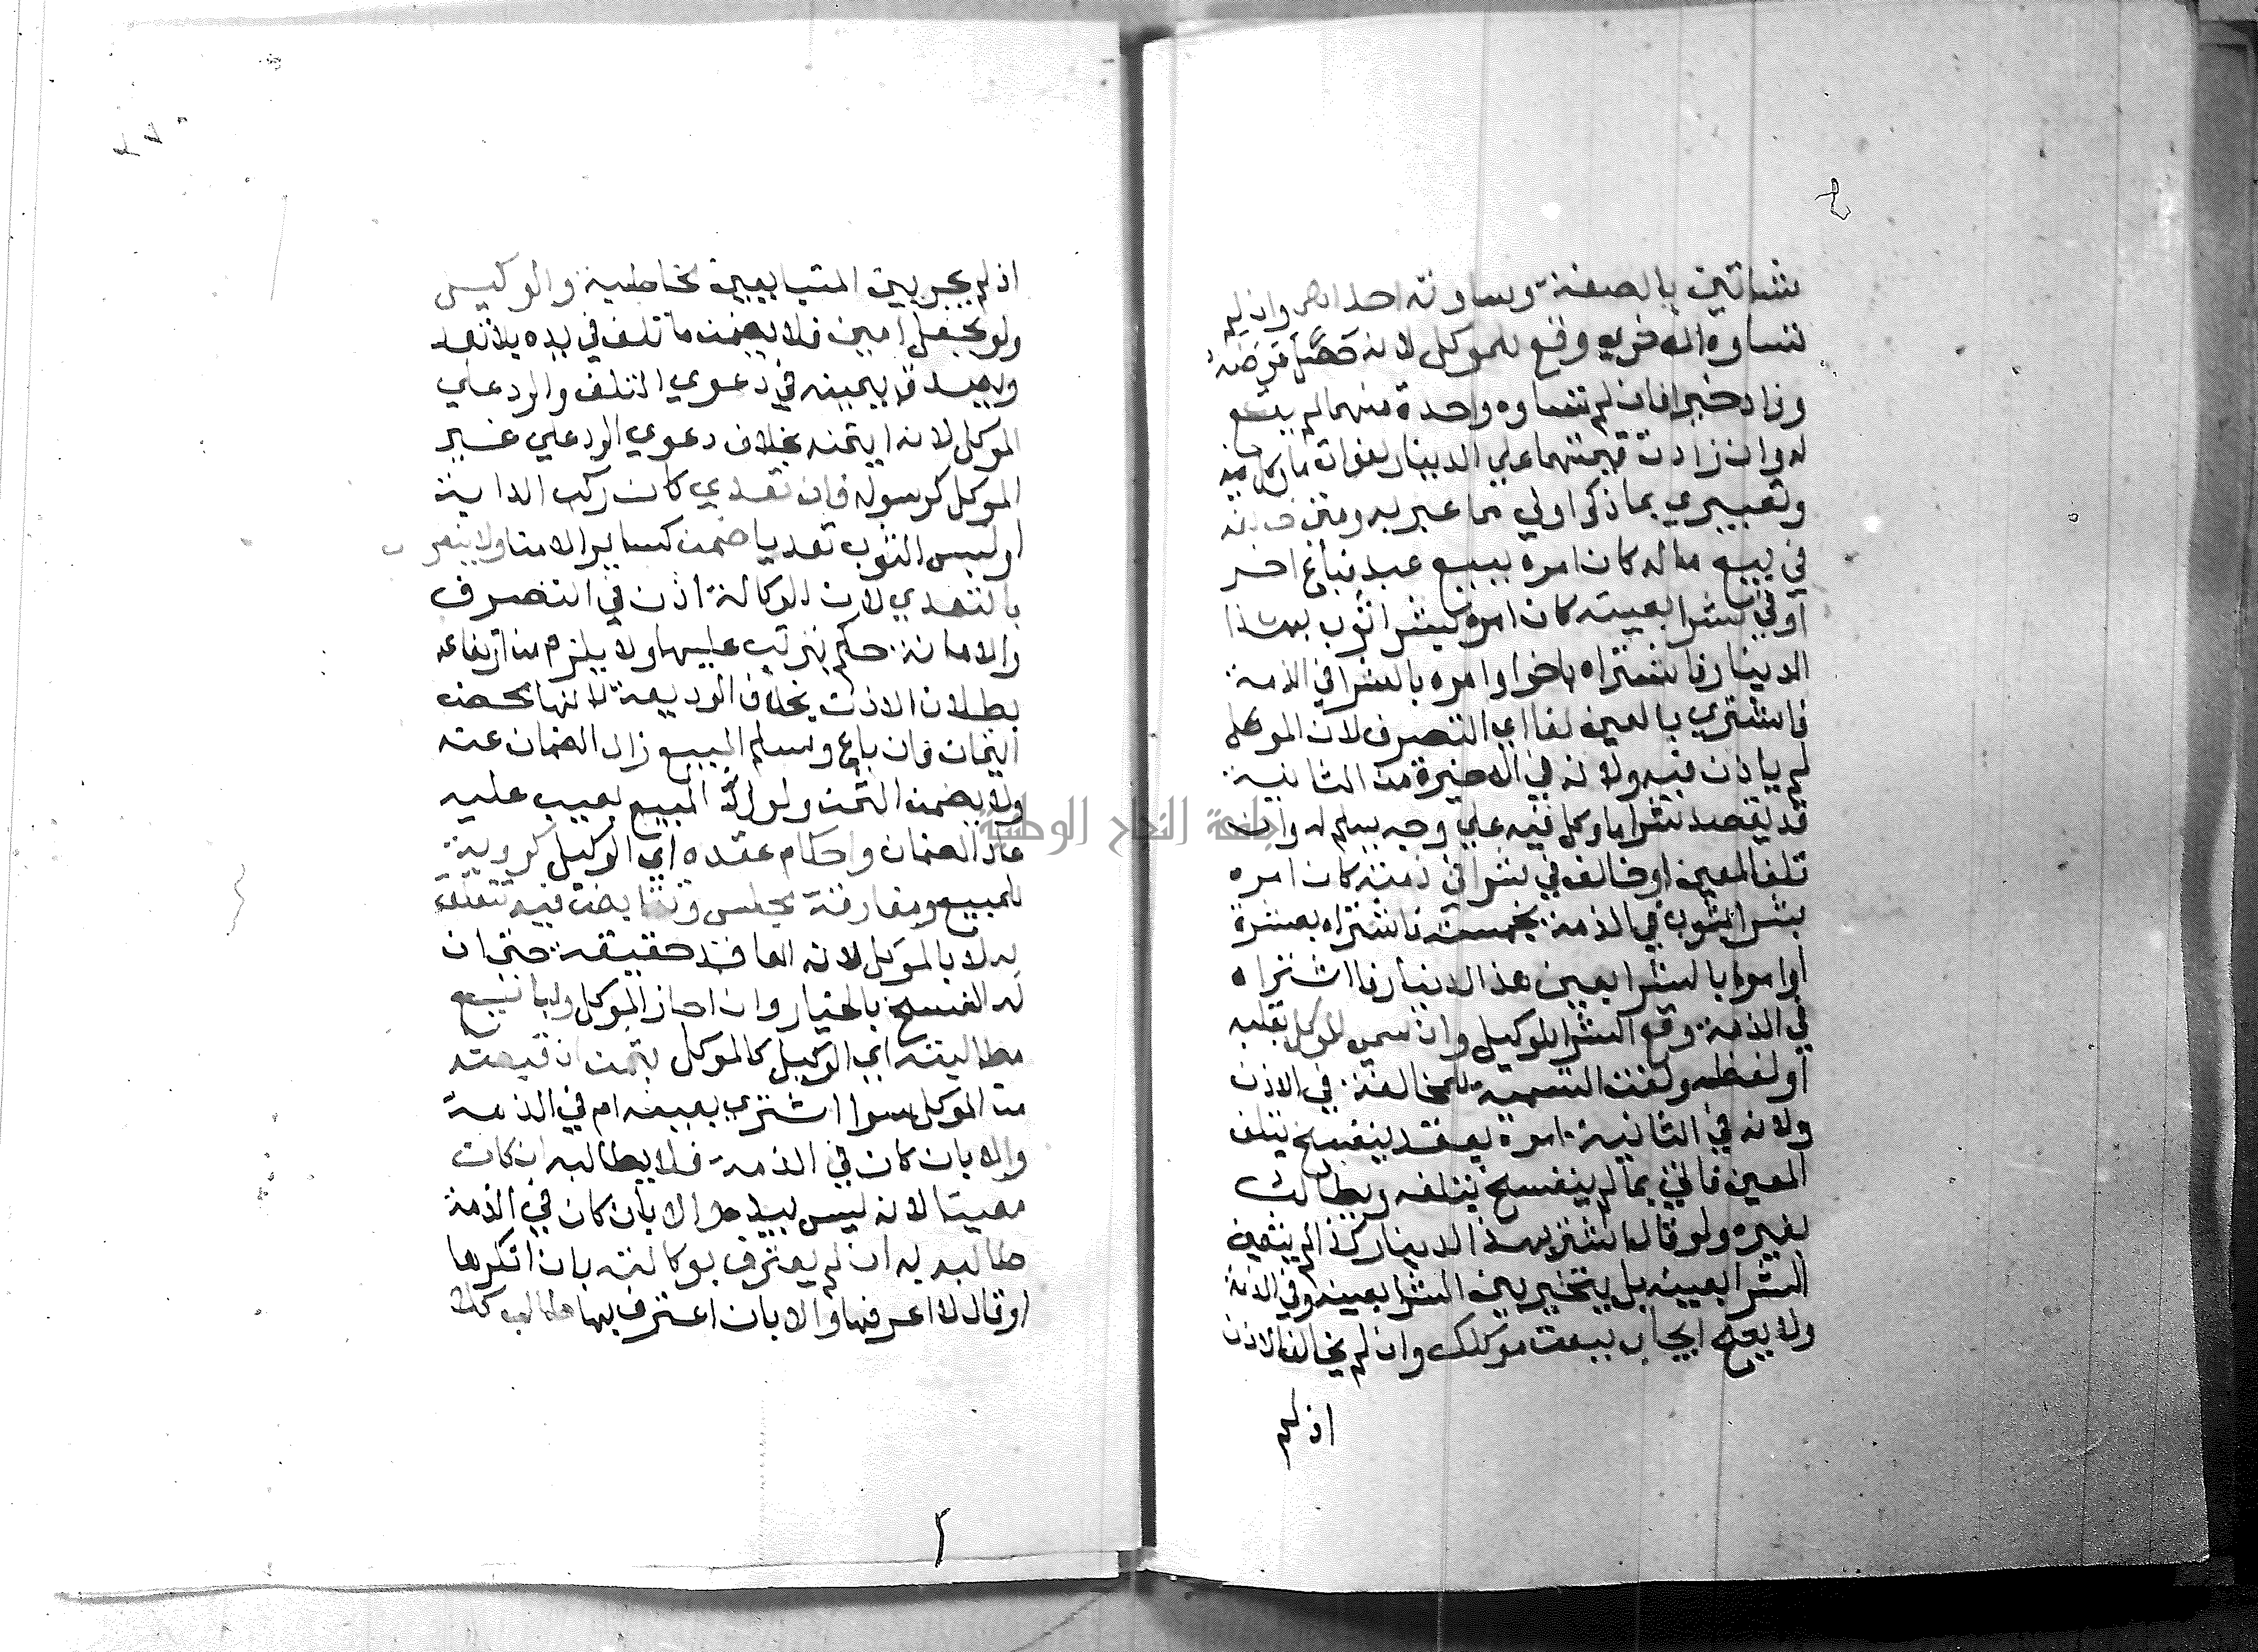 شاتين بالصفة وساوته احداهما وان لم
تساوه الاخري وقع للموكل لانه حصل غرضه
وزاد خيرا فان لم تساوه واحدة منهما لم يقع
له وان زادت قيمتهما علي الدينار لفوات ما وكل فيه
وتعبيري بما ذكر اولي مما عبر به ومتي خالفه
في بيع ماله كان امره ببيع عبد فباع اخر
او في الشرا بعينه كان امره بشرا ثوب بهذا
الدينار فاشتراه باخر او امره بالشرا في الذمة
فاشتري بالعين لغا اي التصرف لان الموكل
لم ياذن فيه ولانه في الاخيرة من الثانية
قد يقصد شرا ما وكل فيه علي وجه يسلم له وان
تلف المعين او خالف في شرا في ذمته كان امره
بشرا ثوب في الذمة بخمسة فاشتراه بعشرة
او امره بالشرا بعين هذا الدينار فااشتراه
في الذمة وقع الشرا للوكيل وان سمي الموكل بقلبه
او لفظه ولغت التسمية للمخالفة في الاذن
ولانه في الثانية امره بعقد ينفسخ بتلف
المعين فاتي بما لم ينفسخ بتلفه ويطالب
بغيره ولو قال اشتر بهذا الدينار كذا لم يتعين
الشرا بعينه بل يتخير بين الشرا بعينه وفي الذمة
ولا يصح ايجاب ببعت موكلك وان لم يخالف الاذن
اذ لم
اذ لم يجر بين المتبايعين مخاطبة والوكيل
ولو بجعل امين فلا يضمن ما تلف في يده بلا تعد
ويصدق بيمينه في دعوي التلف والرد علي
الموكل لانه ايتمنه بخلاف دعوي الرد علي غير
الموكل كرسوله فان تعدي كان ركب الدابة
او لبس الثوب تعديا ضمن كساير الامنا ولا ينعزل
بالتعدي لان الوكالة اذن في التصرف
والامانة حكم يترتب عليها ولا يلزم من ارتفاعه
بطلان الاذن بخلاف الوديعة لانها محض
ايتمان فان باع وسلم المبيع زال الضمان عنه
ولا يضمن الثمن ولو رد المبيع بعيب عليه
عاد الضمان واحكام عقده اي الوكيل كروية
للمبيع ومفارقة مجلس وتقابض فيه تتعلق
به لا بالموكل لانه العاقد حقيقة حتي ان
له الفسخ بالخيار وان اجاز الموكل ولبايع
مطالبته اي الوكيل كالموكل بثمن ان قبضه
من الموكل سوا اشتري بعينه ام في الذمة
والا بان كان في الذمة فلا يطالبه ان كان
معينا لانه ليس بيده والا بان كان في الذمة
طالبه به ان لم يعترف بوكالته بان انكرها
او قال لا اعرفها والا بان اعترف بها طالب كلا
جامعة النجاح الوطنية